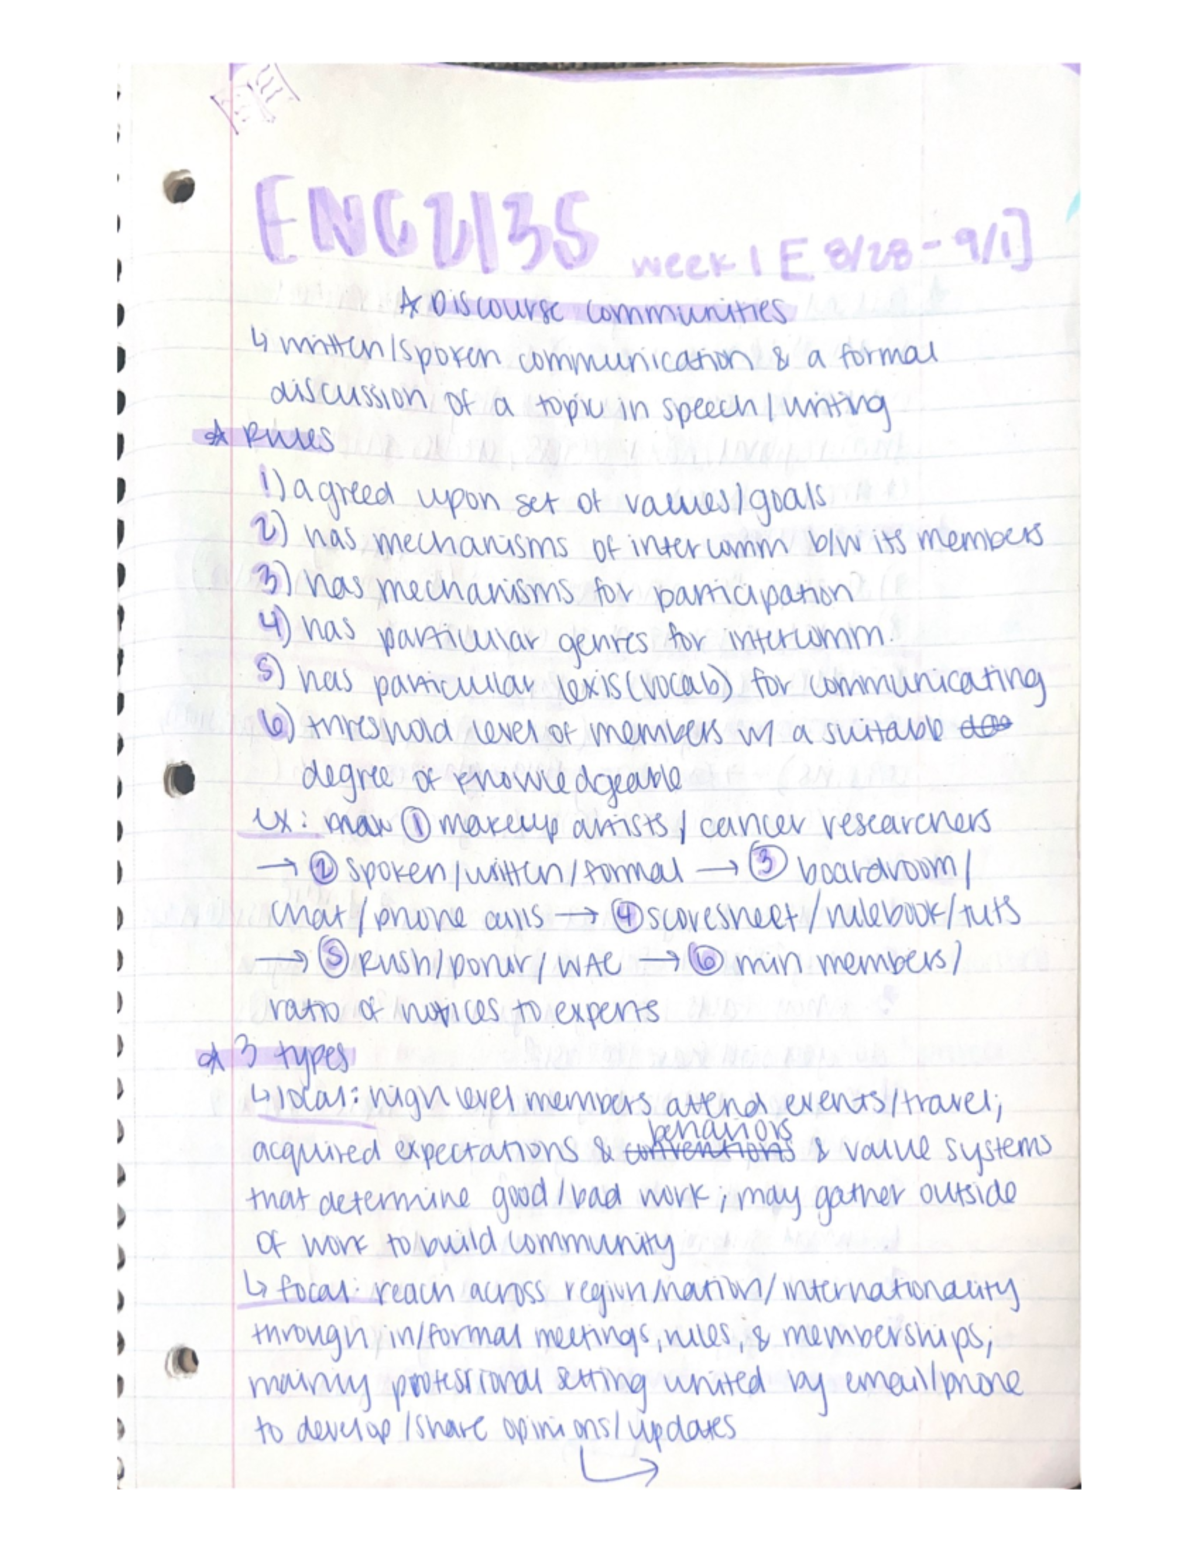 ENC2135 week 1 [8/28 - 9/1]
☆ Discourse Communities
↳ written/spoken communication & a formal
discussion of a topic in speech/writing
☆ Rules
1) agreed upon set of values/goals
2) has mechanisms of intercomm b/w its members
3) has mechanisms for participation
4) has particular genres for intercomm.
5) has particular lexis (vocab) for communicating
6) threshold level of members w a suitable
degree of knowledgeable
ex: ① makeup artists/ cancer researchers
→ ② spoken/written/formal → ③ boardroom/
chat/phone calls → ④ scoresheet/rulebook/tuts
→ ⑤ Rush/donor/WAC → ⑥ min members/
ratio of novices to experts
☆ 3 types
↳ local: high level members attend events/travel;
behaviors
acquired expectations & conventions & value systems
that determine good/bad work; may gather outside
of work to build community
↳ focal: reach across region/nation/internationality
through in/formal meetings, rules, & memberships;
mainly professional setting united by email/phone
to develop/share opinions/updates